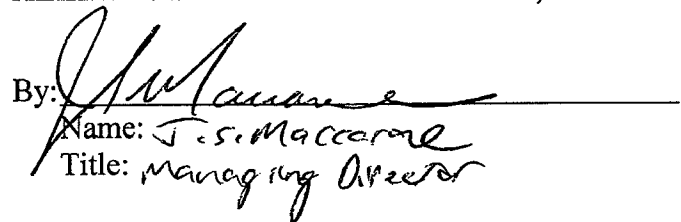 By:
Name: J.S. Maccarone
Title: Managing Director